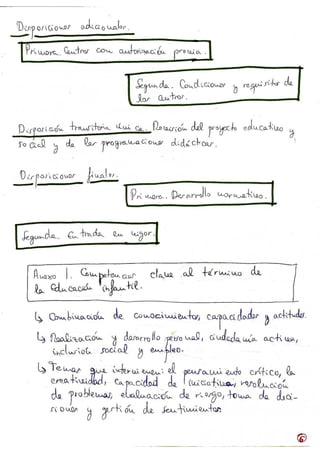 Disposiciones adicionales.
Primera. Centros con autorización previa.
Segunda. Condiciones y requisitos de
los centros.
Disposición transitoria única. Elaboración del proyecto educativo y
social y de las programaciones didácticas.
Disposiciones finales.
Primera. Desarrollo normativo.
Segunda. Entrada en vigor.
Anexo I. Competencias clave al término de
la Educación infantil.
↳ Combinación de conocimientos, capacidades y actitudes.
↳ Realización y desarrollo personal, ciudadanía activa,
inclusión social y empleo.
↳ Temas que intervienen: el pensamiento crítico, la
creatividad, capacidad de iniciativa, resolución
de problemas, evaluación de riesgo, toma de deci-
siones y gestión de sentimientos